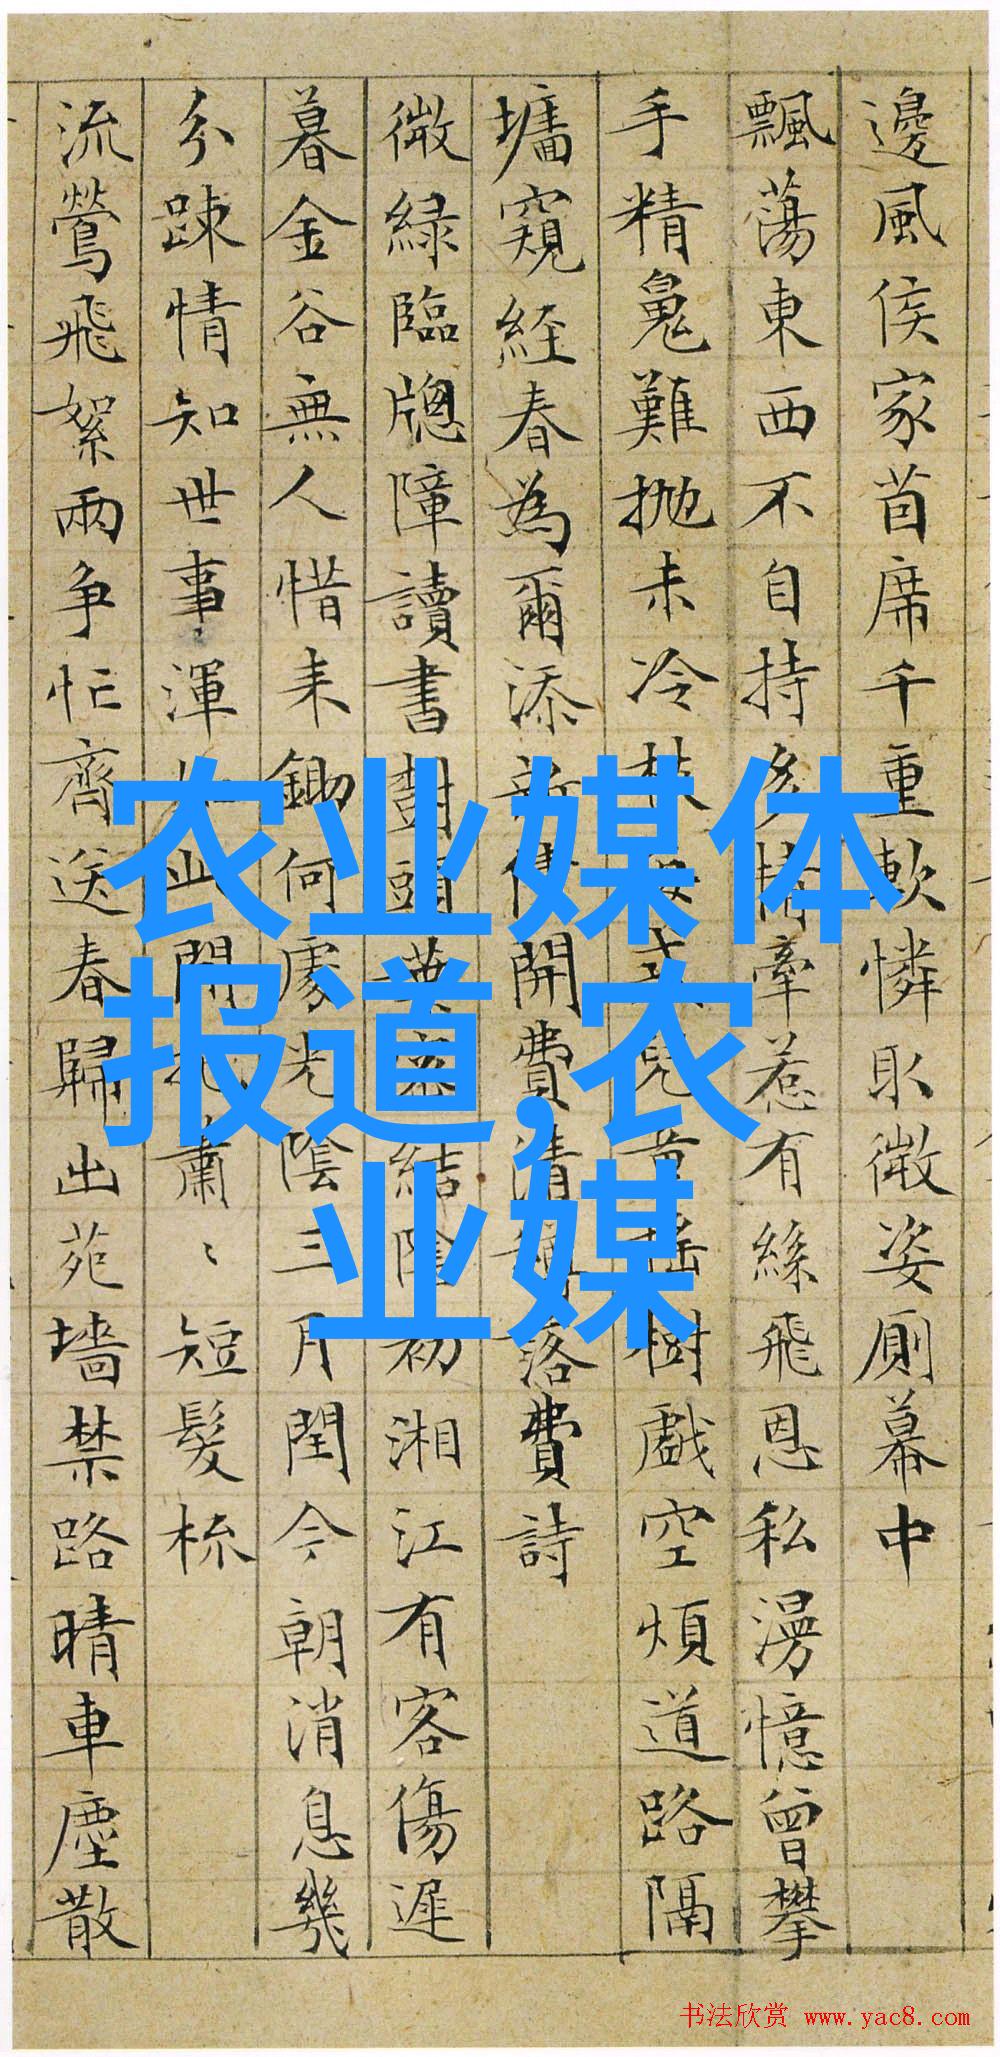 邊風侯家茵席千重軟憐取微姿廁幕中
飄蕩東西不自持多情牽惹有絲飛恩私漫憶曾攀
手精難拋未冷兒童搖樹戲空煩道路隔
墻窺經春為爾添新債開費清尊落費詩
微綠臨牕障讀書樹頭結陰初湘江有客傷遲
暮金谷無人惜未鋤何處光陰三月閏今朝消息幾
分踈情知世事渾如此肅〻短髮梳
流鶯飛絮兩爭忙齊送春歸出苑墻禁路晴車塵散
农业媒体
报道,农
业媒
书法欣赏 www.yac8.com